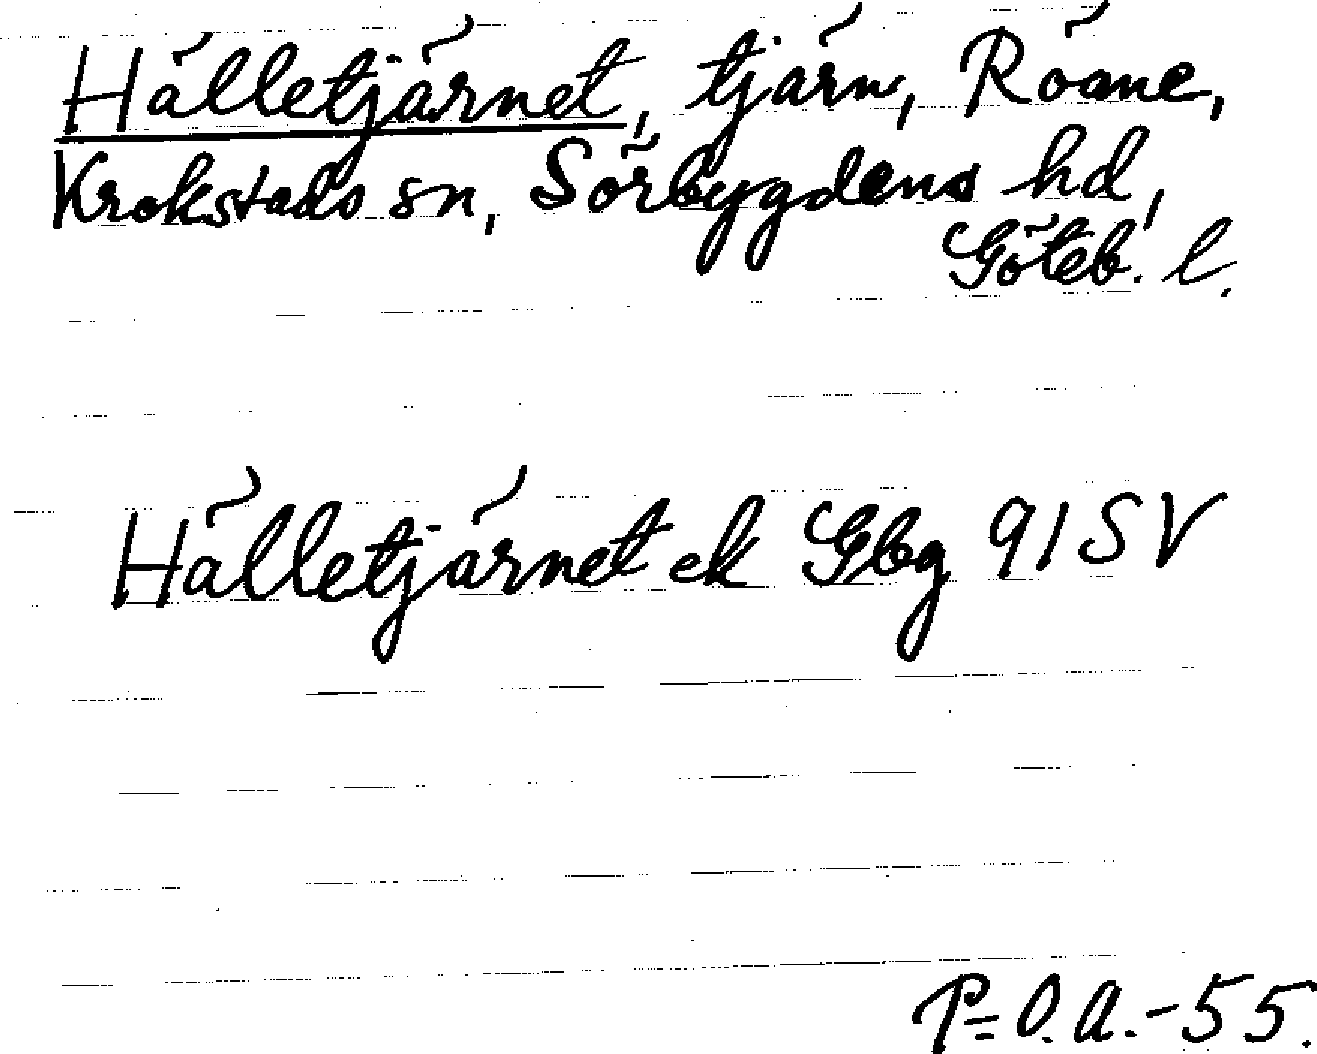 Hälletjärnet, tjärn, Röane,
Krokstads sn, Sörbygdens hd,
Göteb. l.
Hälletjärnet ek Gbg 91 SV
P=O.A.-55.